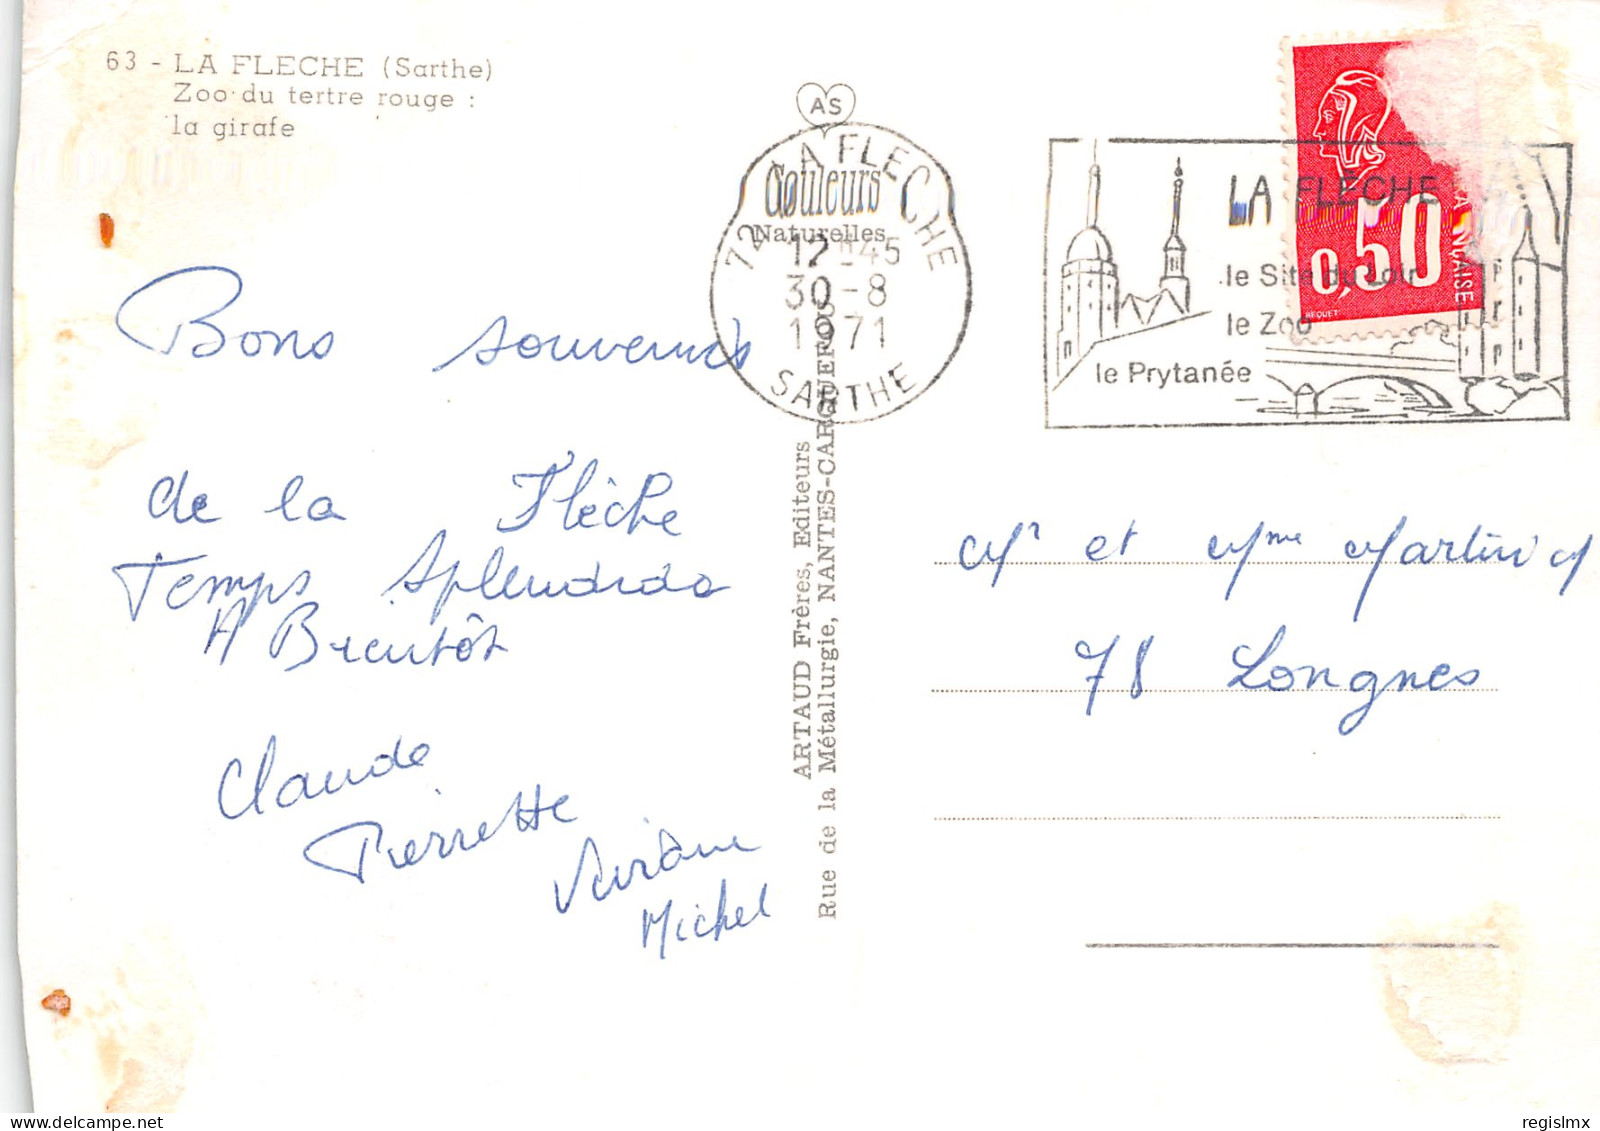 63 - LA FLECHE (Sarthe)
Zoo du tertre rouge :
la girafe
AS
Couleurs
Naturelles
72 LA FLECHE
12H45
30-8
1971
SARTHE
LA FLÈCHE
le Site du Loir
le Zoo
le Prytanée
0,50
BEQUET
Bons souvenirs
de la Flèche
Temps splendide
A Bientôt
Claude
Pierrette
Viviane
Michel
ARTAUD Frères, Editeurs
Rue de la Métallurgie, NANTES-CARQUEFOU
Mr et Mme Martin M
78 Longnes
regislmx